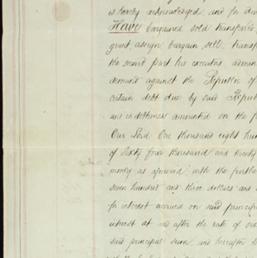 is hereby acknowledged, and for
Have bargained sold transferred
grant, assign bargain sell, transf
the second part his executors admin
demand against the Republic of
certain debt due by said Repub
such indebtedness amounted on the f
Our Lord One thousand eight hund
of Sixty four thousand and
money as aforesaid, with the further
seven hundred and three dollars and
for interest accrued on said princip
interest at after the rate of
said principal sum, and hereafter to